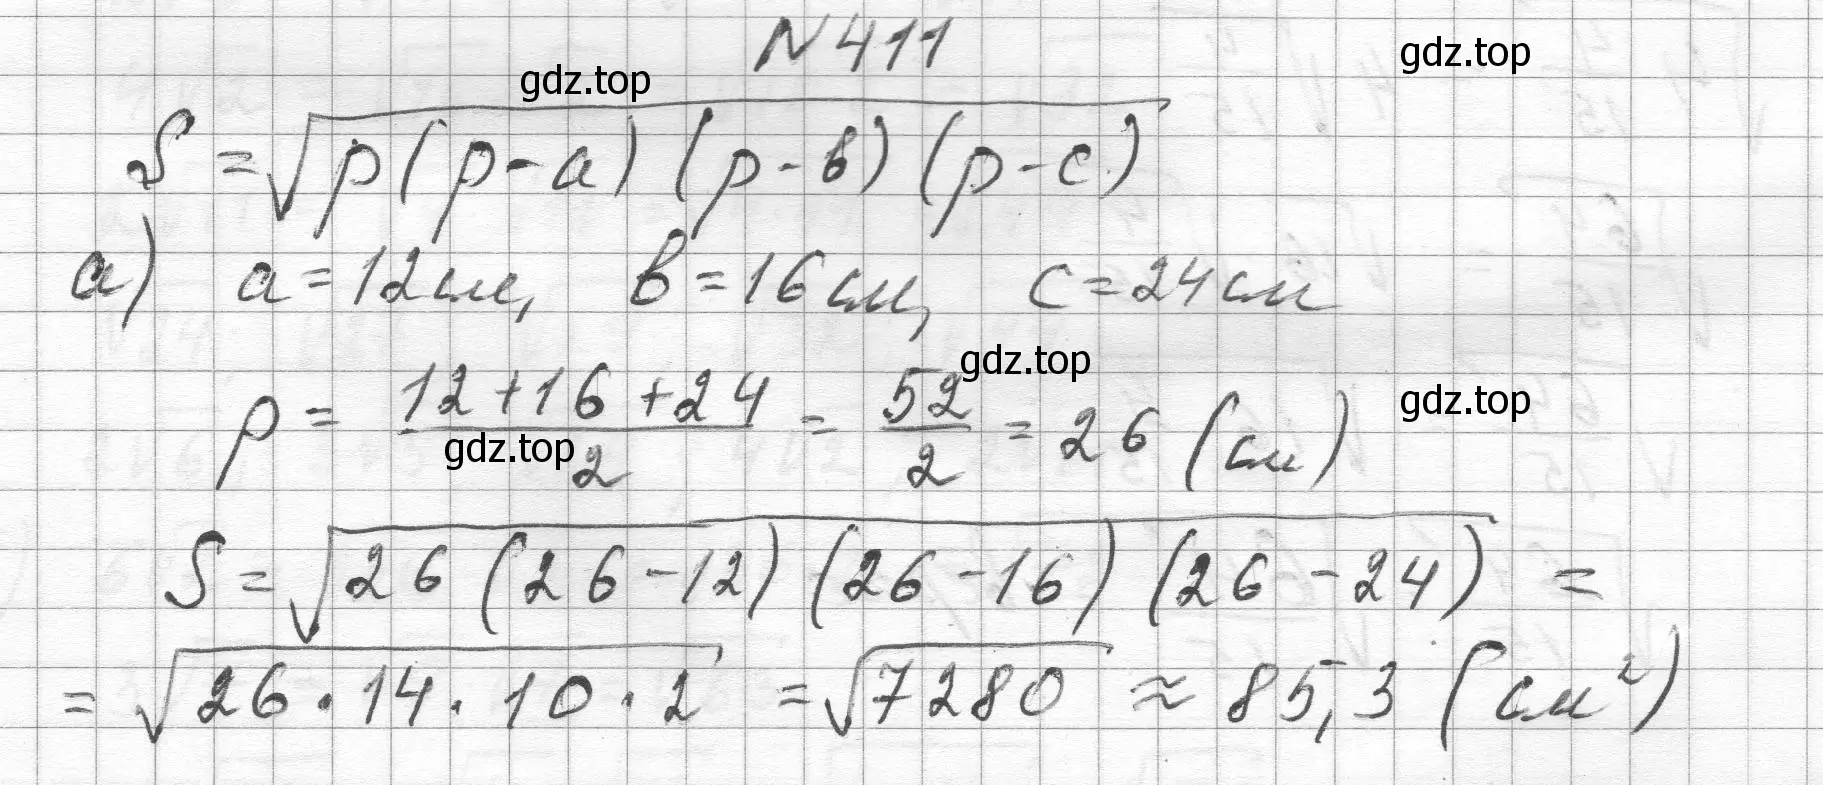 N 411
gdz.top
gdz.top
S = √p(p-a)(p-в)(p-c)
а) a = 12 см, в = 16 см, c = 24 см
gdz.top
p = 12+16+24/2 = 52/2 = 26 (см)
gdz.top
gdz.top
S = √26(26-12)(26-16)(26-24) =
= √26·14·10·2 = √7280 ≈ 85,3 (см²)